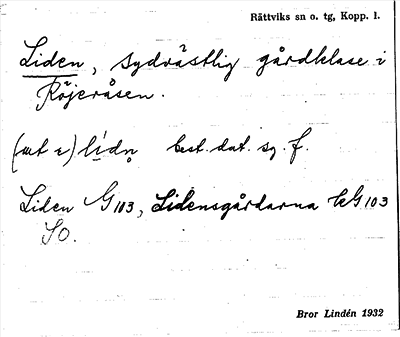 Rättviks sn o. tg, Kopp. l.
Liden, sydvästlig gårdklase i
Röjeråsen.
lídn best. dat. sg. f.
Liden G 103, Lidensgårdarna G 103
SO.
Bror Lindén 1932